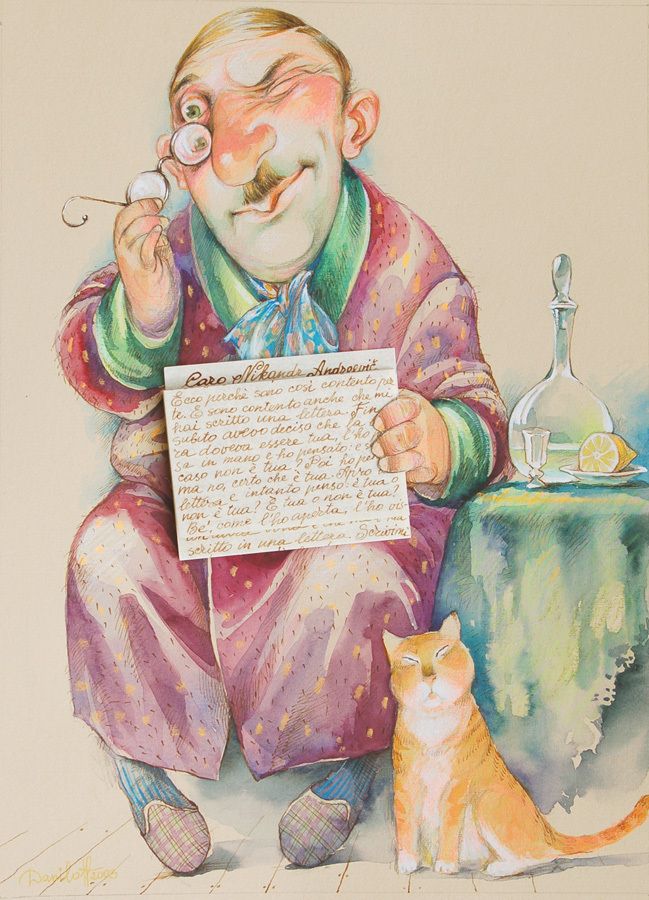 Caro Nikandr Andreevič
Ecco perchè sono così contento per
te. E sono contento anche che mi
hai scritto una lettera. Fin
subito avevo deciso che la
ra doveva essere tua, l'ho
sa in mano e ho pensato: e s
caso non è tua? Poi ho
ma no, certo che è tua. Apro
lettera e intanto penso: è tua o
non è tua? È tua o non è tua?
Be', come l'ho aperta, l'ho
scritto in una lettera Scrivimi